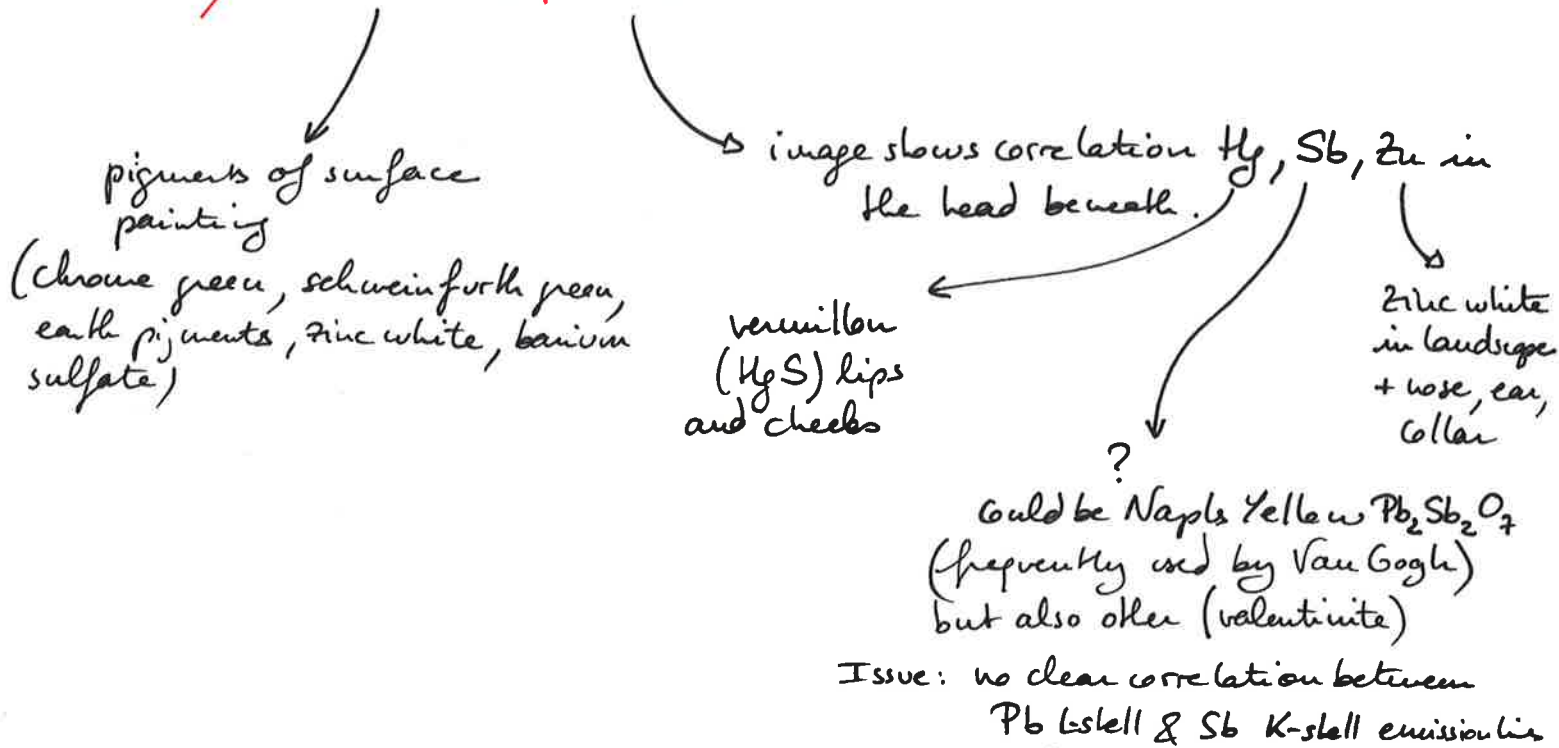 pigments of surface
painting
(chrome green, schweinfurth green,
earth pigments, zinc white, barium
sulfate)
image shows correlation Hg, Sb, Zn in
the head beneath.
vermillon
(HgS) lips
and cheeks
Zinc white
in landscape
+ nose, ear,
collar
?
Could be Napls Yellow Pb₂Sb₂O₇
(frequently used by Van Gogh)
but also other (valentinite)
Issue: no clear correlation between
Pb L-shell & Sb K-shell emission lin